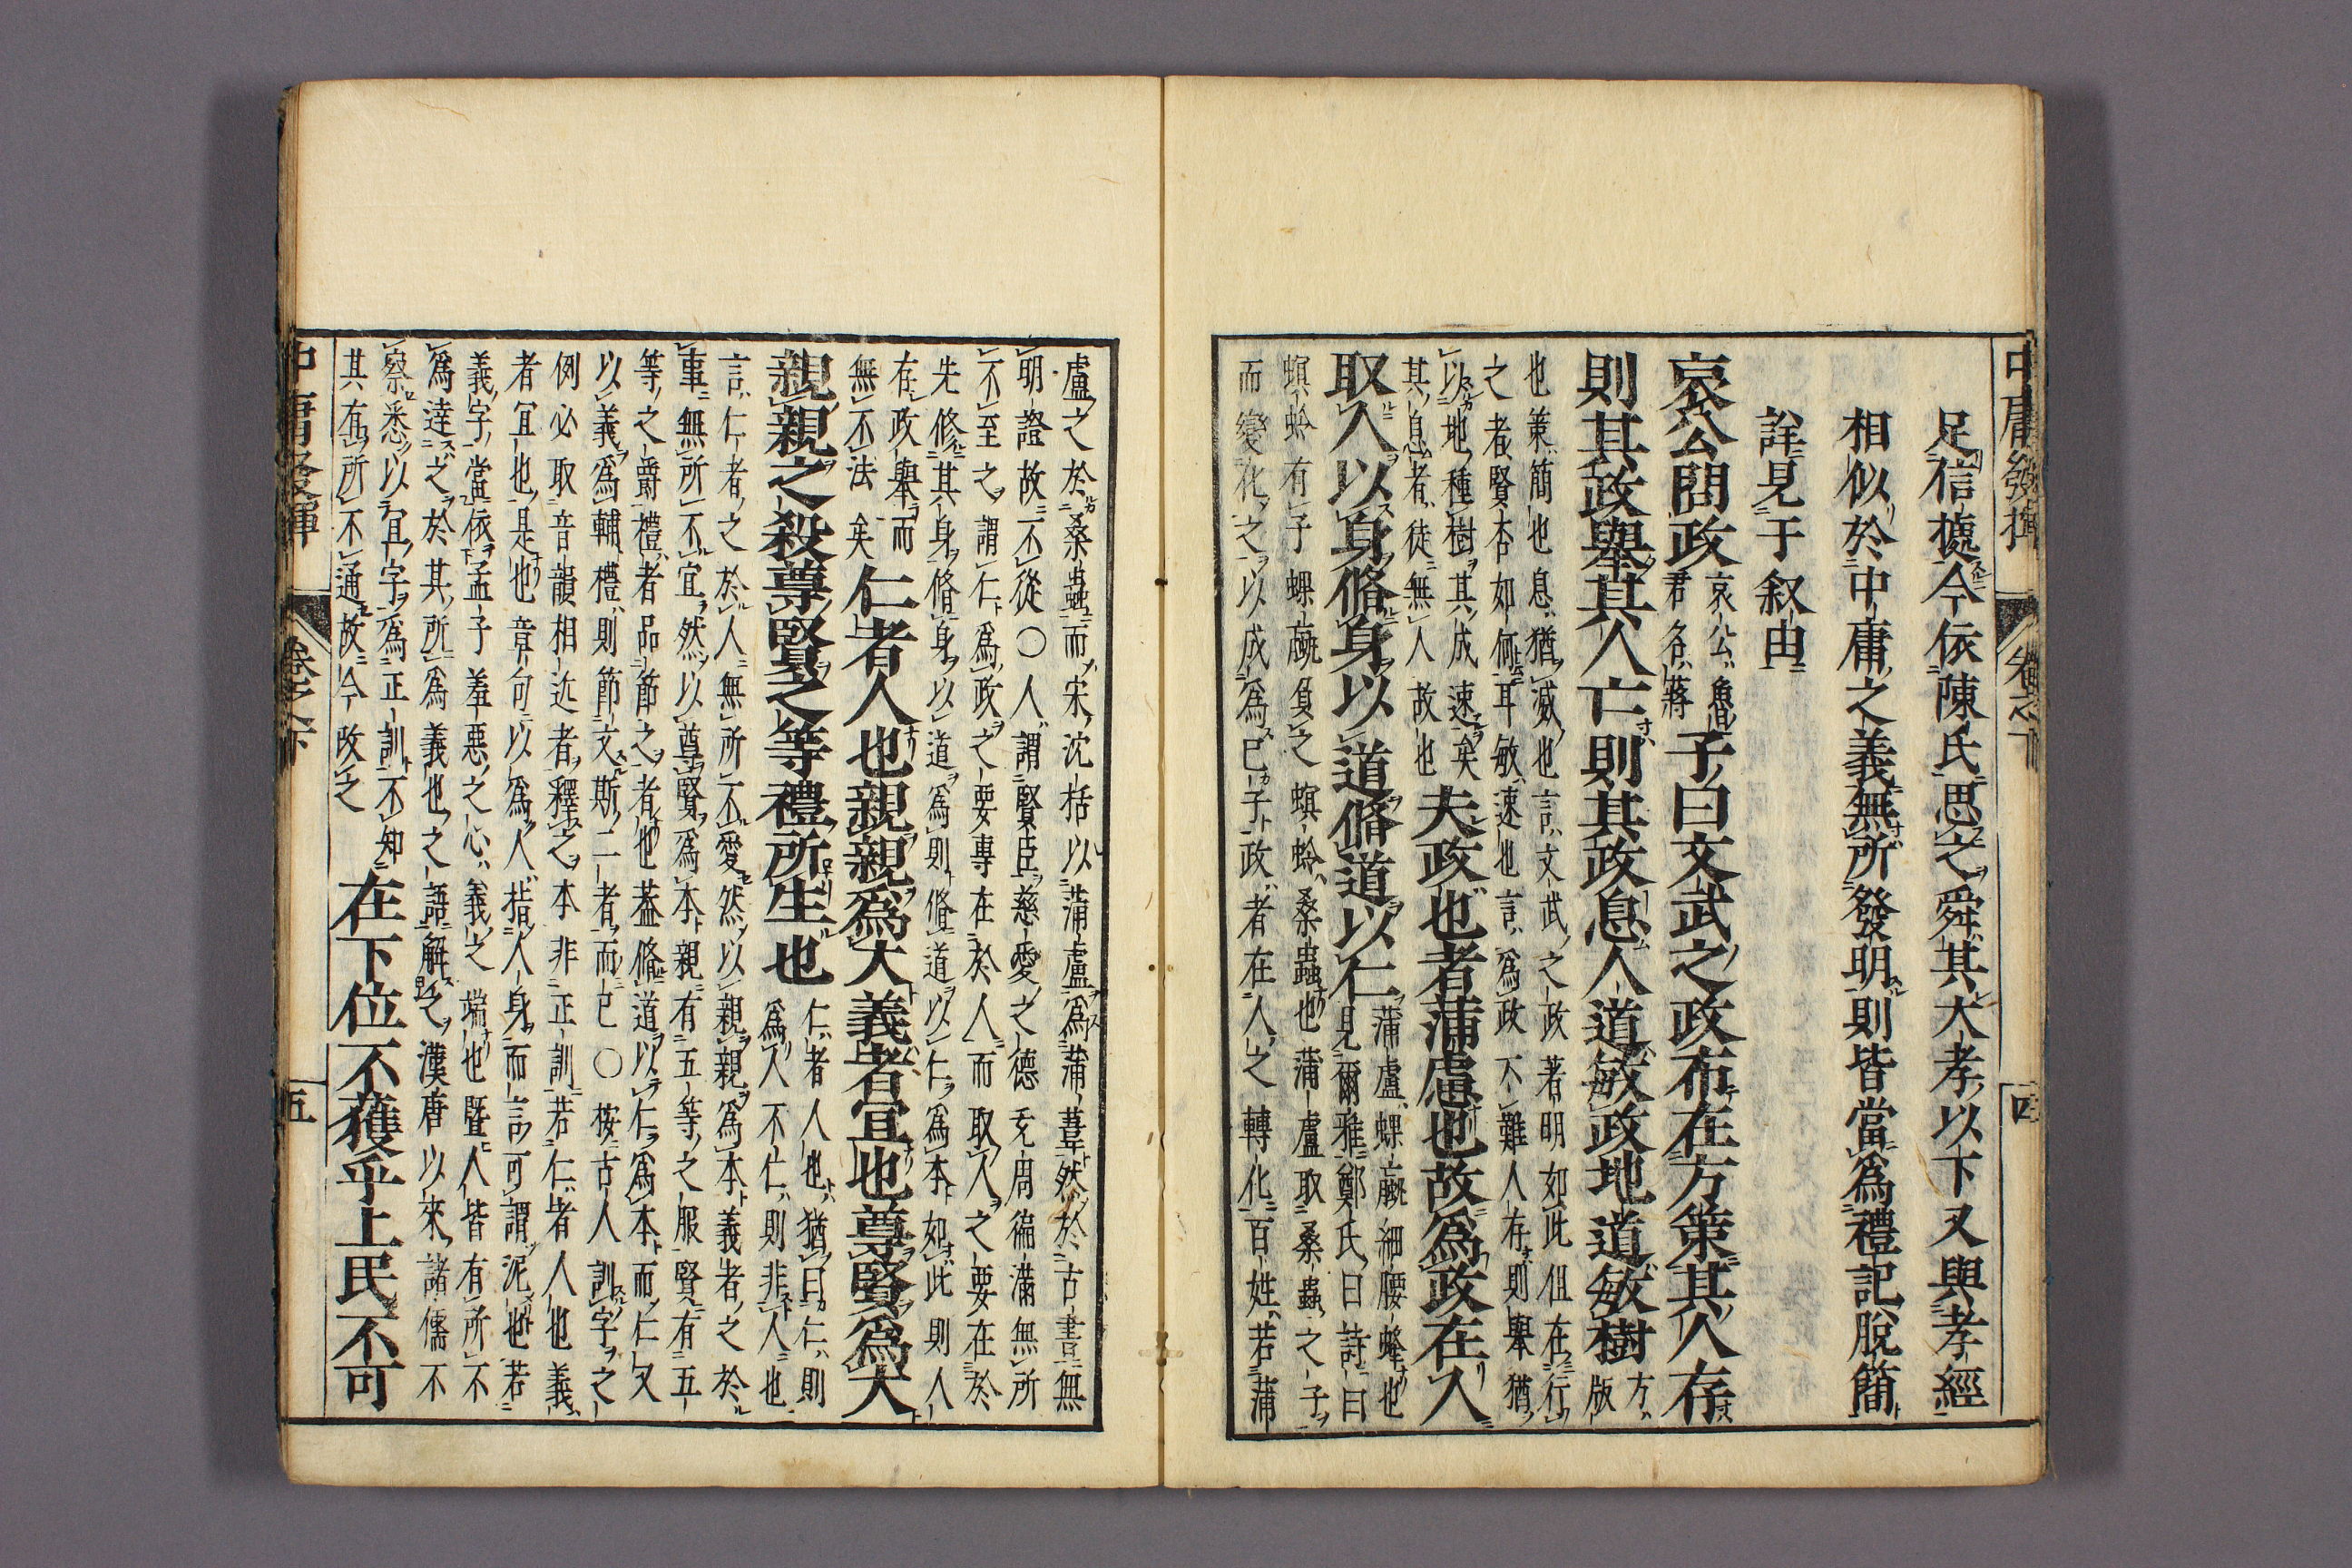 中庸發揮 卷之下 四
足信據今依陳氏思之舜其大孝以下又與孝經
相似於中庸之義無所發明則皆當爲禮記脫簡
詳見于叙由
哀公問政
哀公魯
君名蔣
子曰文武之政布在方策其人存
則其政舉其人亡則其政息人道敏政地道敏樹
方版
也策簡也息猶滅也言文武之政著明如此但在行
之者賢否如何耳敏速也言爲政不難人存則舉猶
以地種樹其成速矣
其息者徒無人故也
夫政也者蒲盧也故爲政在人
取人以身脩身以道脩道以仁
蒲盧蜾蠃細腰蜂也
見爾雅鄭氏曰詩曰
螟蛉有子蜾蠃負之螟蛉桑蟲也蒲盧取桑蟲之子
而變化之以成爲己子政者在人之轉化百姓若蒲
盧之於桑蟲而宋沈括以蒲盧爲蒲葦然於古書無
明證故不從○人謂賢臣慈愛之德充周徧滿無所
不至之謂仁爲政之要專在於人而取人之要在於
先修其身脩身以道爲則脩道以仁爲本如此則人
存政舉而
無不法矣
仁者人也親親爲大義者宜也尊賢爲大
親親之殺尊賢之等禮所生也
仁者人也猶曰仁則
爲人不仁則非人也
言仁者之於人無所不愛然以親親爲本義者之於
事無所不宜然以尊賢爲本親有五等之服賢有五
等之爵禮者品節之者也蓋脩道以仁爲本而仁又
以義爲輔禮則節文斯二者而已○按古人訓字之
例必取音韻相近者釋之本非正訓若仁者人也義
者宜也是也章句以爲人指人身而言可謂泥也若
義字當依孟子羞惡之心義之端也曁人皆有所不
爲達之於其所爲義也之語解之漢唐以來諸儒不
察悉以宜字爲正訓不知
其有所不通故今改之
在下位不獲乎上民不可
中庸發揮 卷之下 五